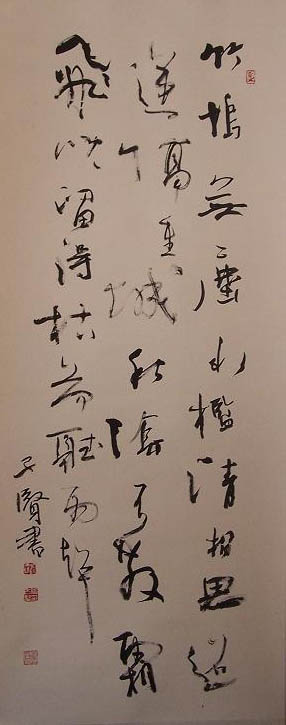 竹塢無塵水檻清相思迢
遞隔重城秋陰不散霜
飛晚留得枯荷聽雨聲
子賢書